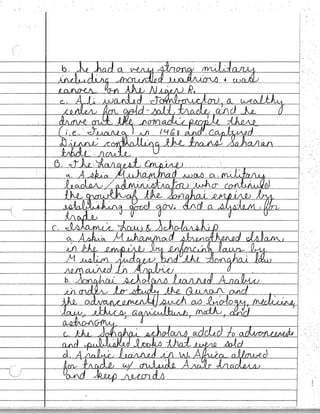 b. he had a very strong military
including mounted warriors + war
canoes on the Niger R.
c. Ali wanted Tombouctou, a wealthy
center for gold-salt trade and he
drove out the nomadic people there
(i.e. Tuareg) in 1468 and captured
Djenné controlling the trans Saharan
trade route
B. The Largest Empire
a. Askia Muhammad was a military
leader/administrator who continued
the growth of the Songhai empire by
establishing good gov. and a system for
trade
C. Islamic Law & Scholarship
a. Askia Muhammad strengthened Islam
in the empire by enforcing laws by
Muslim judges and the Songhai law
remained in Arabic
b. Songhai scholars learned Arabic
in order to study the Quran and
the advancements such as biology, medicine,
law, ethics, agriculture, math, and
astronomy
c. the Songhai scholars added to advancements
and published books that were sold
d. Arabic learned in W. Africa allowed
for trade w/ outside Arab traders
and keep records